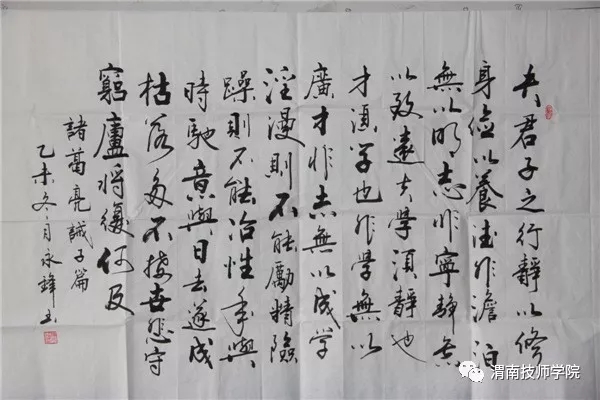 夫君子之行靜以修
身儉以養德非澹泊
無以明志非寧靜無
以致遠夫學須靜也
才須學也非學無以
廣才非志無以成学
淫漫則不能勵精險
躁則不能冶性年與
時馳意與日去遂成
枯落多不接世悲守
窮廬將復何及
諸葛亮誡子篇
乙未冬月永鋒书
渭南技师学院